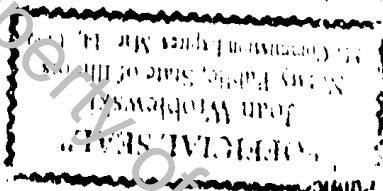 "OFFICIAL SEAL"
Joan Wroblewski
Notary Public, State of Illinois
My Commission Expires Mar. 14,
Property of